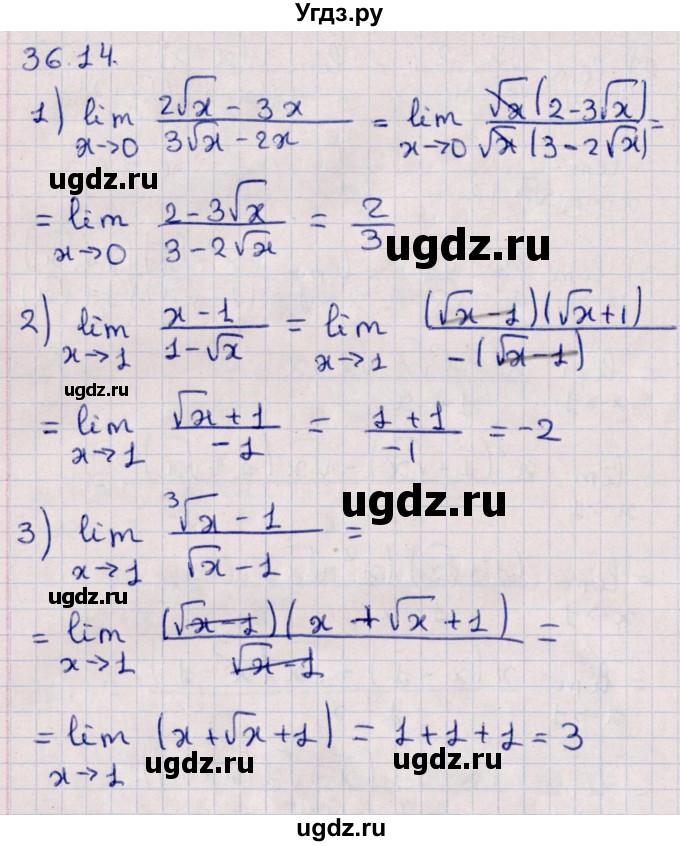 Угдз.ру
36.14.
1) lim x→0 (2√x - 3x)/(3√x - 2x) = lim x→0 √x(2-3√x)/√x(3-2√x) =
ugdz.ru
= lim x→0 (2-3√x)/(3-2√x) = 2/3
ugdz.ru
2) lim x→1 (x-1)/(1-√x) = lim x→1 (√x-1)(√x+1)/-(√x-1)
ugdz.ru
= lim x→1 (√x+1)/-1 = (1+1)/-1 = -2
ugdz.ru
3) lim x→1 (³√x - 1)/(√x-1) =
ugdz.ru
= lim x→1 (√x-1)(x+√x+1)/√x-1 =
= lim x→1 (x+√x+1) = 1+1+1 = 3
ugdz.ru
ugdz.ru
ugdz.ru